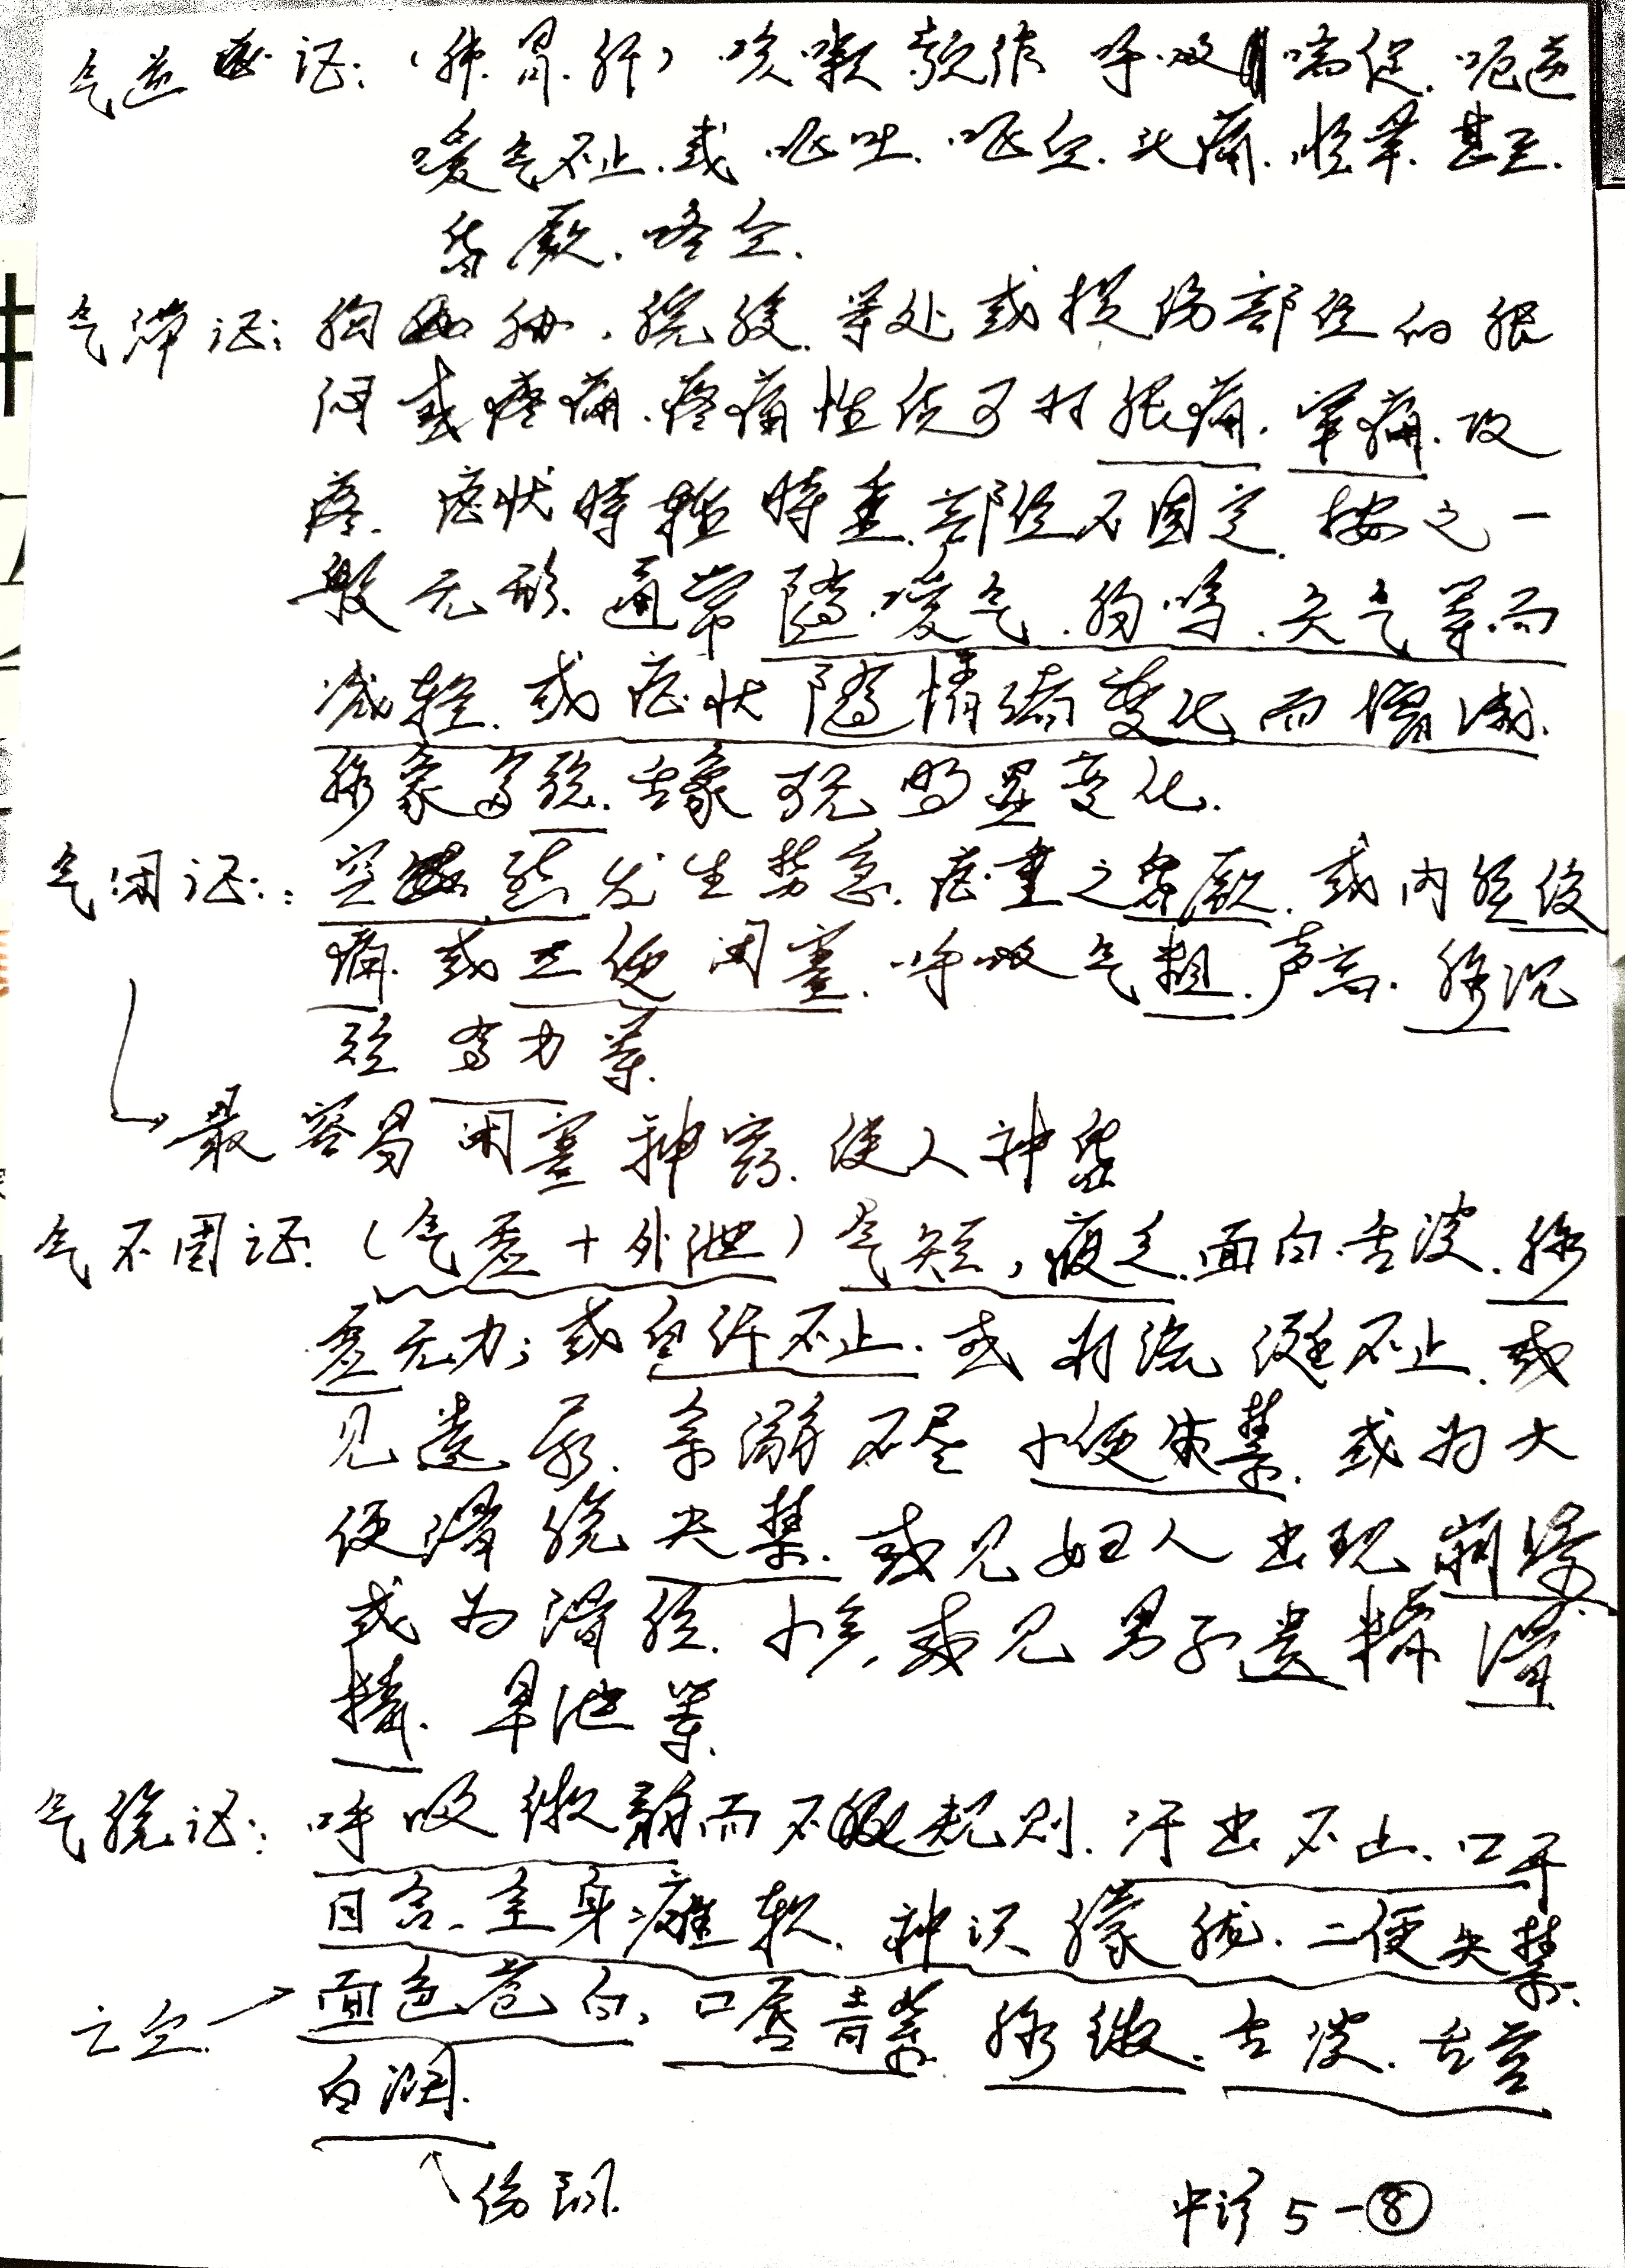 气逆证:(肺.胃.肝)咳嗽频作 呼吸喘促.呃逆
嗳气不止.或呕吐.呕血.头痛.眩晕.甚至.
昏厥.咯血.
气滞证:胸胁.脘腹.等处或损伤部位的胀
闷或疼痛.疼痛性质可为胀痛.窜痛.攻
疼.症状时轻时重.部位不固定.按之一
般无形.通常随嗳气.肠鸣.矢气等而
减轻.或症状随情绪变化而增减.
脉象多弦.舌象可无明显变化.
气闭证:突然发生势急.症重之昏厥.或内脏绞
痛.或二便闭塞.呼吸气粗.声高.脉沉
弦有力等.
最容易闭塞神窍.使人神昏
气不固证.(气虚+外泄)气短,疲乏.面白.舌淡.脉
虚无力;或自汗不止.或为流涎不止.或
见遗尿.余溺不尽 小便失禁.或为大
便滑脱失禁.或见妇人出现崩漏
或为滑胎.小产,或见男子遗精 滑
精.早泄等.
气脱证:呼吸微弱而不规则.汗出不止.口开
目合.全身瘫软.神识朦胧.二便失禁.
面色苍白.口唇青紫 脉微.舌淡.舌苔
白润.
亡血.
伤阴.
中诊5-⑧